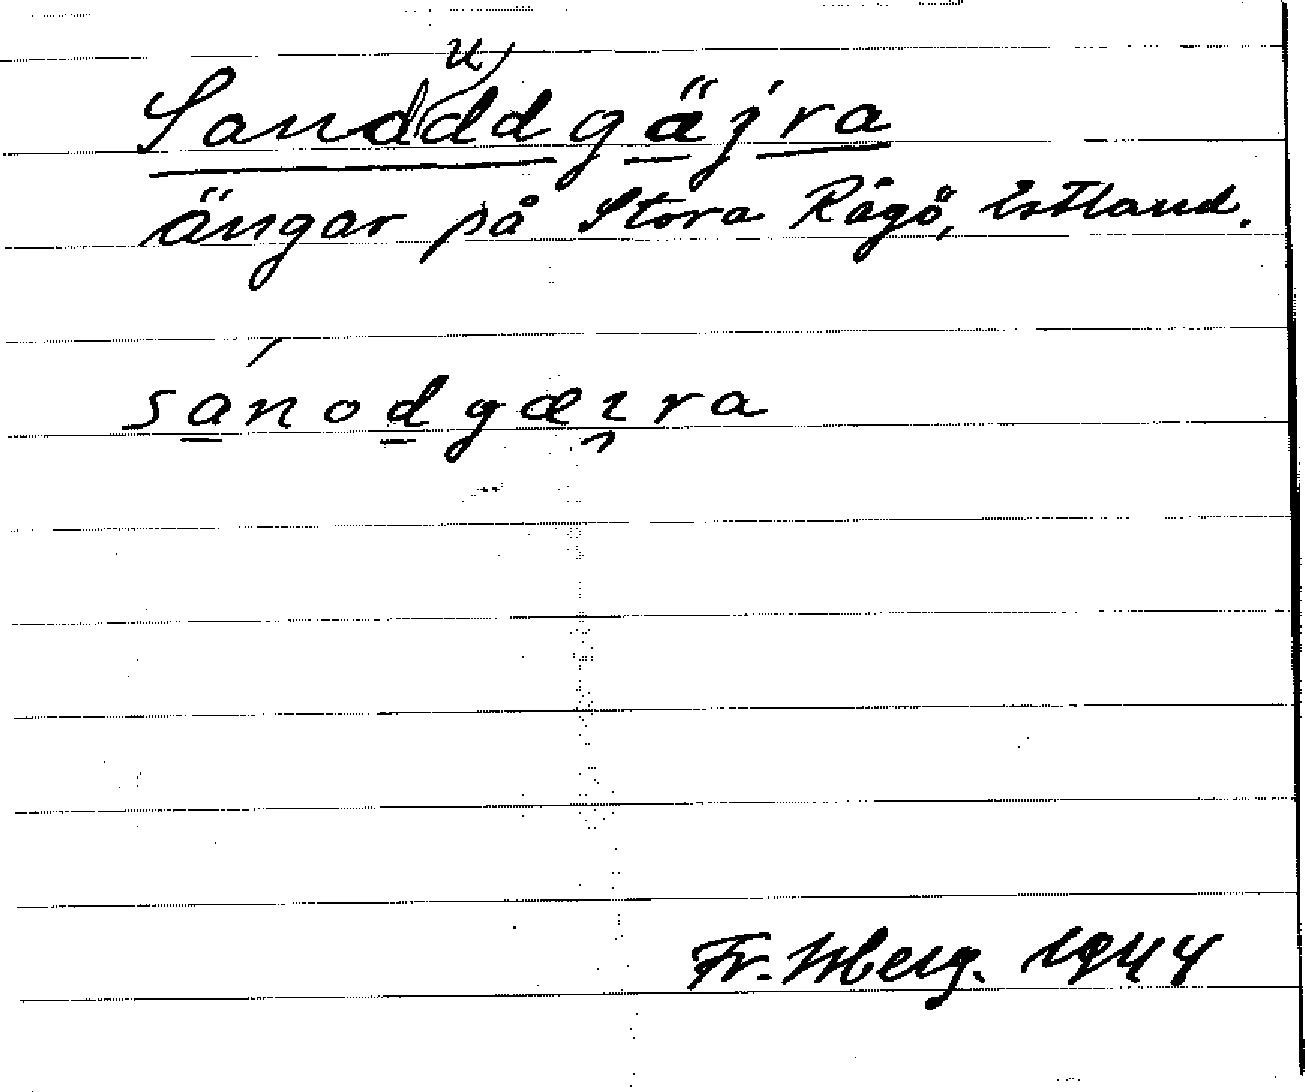 Sanduddgäjra
ängar på Stora Rågö, Estland.
sánodgæıra
Fr. Isberg. 1944